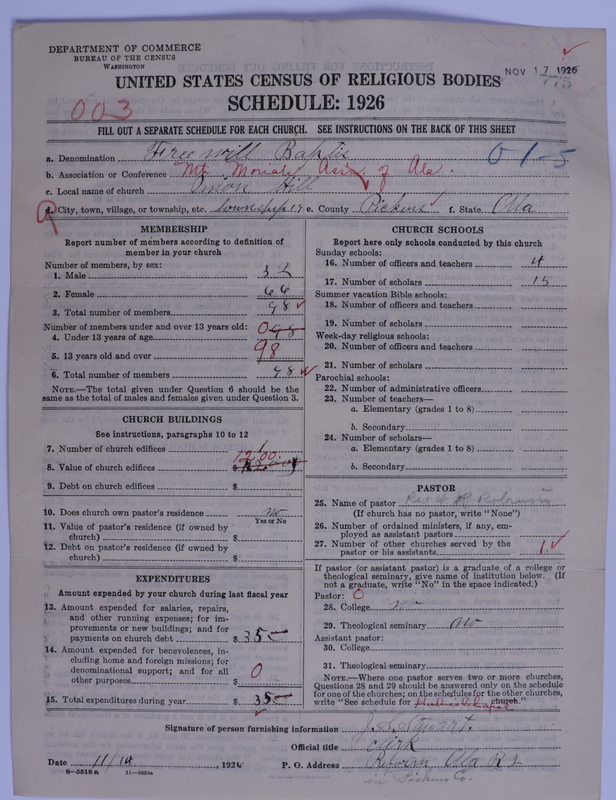 DEPARTMENT OF COMMERCE
BUREAU OF THE CENSUS
WASHINGTON
NOV 17 1926
775
UNITED STATES CENSUS OF RELIGIOUS BODIES
SCHEDULE: 1926
003
FILL OUT A SEPARATE SCHEDULE FOR EACH CHURCH. SEE INSTRUCTIONS ON THE BACK OF THIS SHEET
a. Denomination Free will Baptis
01-5
b. Association or Conference Mt. Moriah Assn. of Ala.
c. Local name of church Union Hill
R d. City, town, village, or township, etc. township 19 e. County Pickens f. State Ala
MEMBERSHIP
Report number of members according to definition of
member in your church
Number of members, by sex:
1. Male 32
2. Female 66
3. Total number of members 98
Number of members under and over 13 years old:
4. Under 13 years of age 0 98
5. 13 years old and over 98
6. Total number of members 98
NOTE.—The total given under Question 6 should be the
same as the total of males and females given under Question 3.
CHURCH BUILDINGS
See instructions, paragraphs 10 to 12
7. Number of church edifices 1
8. Value of church edifices $ 1200.
9. Debt on church edifices $
10. Does church own pastor's residence no
Yes or No
11. Value of pastor's residence (if owned by
church) $
12. Debt on pastor's residence (if owned by
church) $
EXPENDITURES
Amount expended by your church during last fiscal year
13. Amount expended for salaries, repairs,
and other running expenses; for im-
provements or new buildings; and for
payments on church debt $ 35
14. Amount expended for benevolences, in-
cluding home and foreign missions; for
denominational support; and for all
other purposes $ 0
15. Total expenditures during year $ 35
CHURCH SCHOOLS
Report here only schools conducted by this church
Sunday schools:
16. Number of officers and teachers 4
17. Number of scholars 15
Summer vacation Bible schools:
18. Number of officers and teachers
19. Number of scholars
Week-day religious schools:
20. Number of officers and teachers
21. Number of scholars
Parochial schools:
22. Number of administrative officers
23. Number of teachers—
a. Elementary (grades 1 to 8)
b. Secondary
24. Number of scholars—
a. Elementary (grades 1 to 8)
b. Secondary
PASTOR
25. Name of pastor Rev W R Robinson
(If church has no pastor, write "None")
26. Number of ordained ministers, if any, em-
ployed as assistant pastors
27. Number of other churches served by the
pastor or his assistants 1
If pastor (or assistant pastor) is a graduate of a college or
theological seminary, give name of institution below. (If
not a graduate, write "No" in the space indicated.)
Pastor: 0
28. College no
29. Theological seminary no
Assistant pastor:
30. College
31. Theological seminary
NOTE.—Where one pastor serves two or more churches,
Questions 28 and 29 should be answered only on the schedule
for one of the churches; on the schedules for the other churches,
write "See schedule for church."
Signature of person furnishing information J. S. Stewart.
Official title Clerk
Date 11/14, 1926 P. O. Address Reform Ala R 2
8-5518 a 11-9064a in Pickens Co.